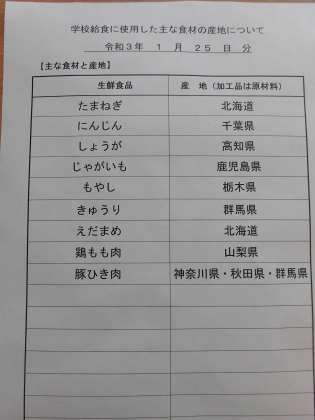 学校給食に使用した主な食材の産地について
令和3年 1 月 25 日 分
【主な食材と産地】
生鮮食品 産 地（加工品は原材料）
たまねぎ 北海道
にんじん 千葉県
しょうが 高知県
じゃがいも 鹿児島県
もやし 栃木県
きゅうり 群馬県
えだまめ 北海道
鶏もも肉 山梨県
豚ひき肉 神奈川県・秋田県・群馬県